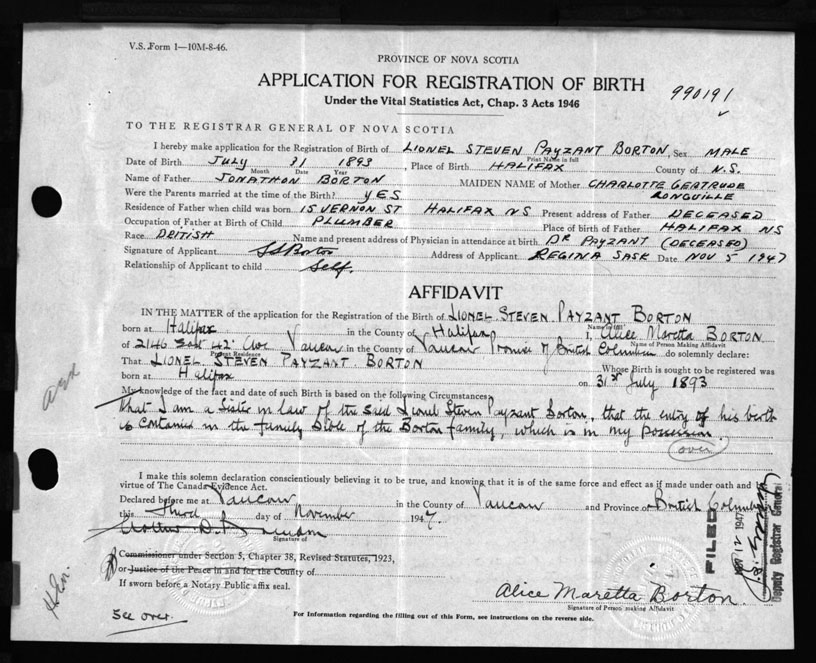 V.S. Form 1—10M-8-46.
PROVINCE OF NOVA SCOTIA
APPLICATION FOR REGISTRATION OF BIRTH
Under the Vital Statistics Act, Chap. 3 Acts 1946
990191
TO THE REGISTRAR GENERAL OF NOVA SCOTIA
I hereby make application for the Registration of Birth of LIONEL STEVEN PAYZANT BORTON, Sex MALE
Print Name in full
Date of Birth JULY 31 1893, Place of Birth HALIFAX County of N.S.
Month Date Year
Name of Father JONATHON BORTON MAIDEN NAME of Mother CHARLOTTE GERTRUDE
Were the Parents married at the time of the Birth? YES
Residence of Father when child was born 15 VERNON ST HALIFAX NS Present address of Father DECEASED
Occupation of Father at Birth of Child PLUMBER Place of birth of Father HALIFAX NS
Race BRITISH Name and present address of Physician in attendance at birth DR PAYZANT (DECEASED)
Signature of Applicant Borton Address of Applicant REGINA SASK Date NOV 5 1947
Relationship of Applicant to child Self.
AFFIDAVIT
IN THE MATTER of the application for the Registration of the Birth of LIONEL STEVEN PAYZANT BORTON
Name in full
born at Halifax in the County of Halifax I, Alice Maretta BORTON
Name of Person Making Affidavit
of 2146 42 Ave Vancou in the County of Vancou Province of British Columbia do solemnly declare:
Present Residence
That LIONEL STEVEN PAYZANT BORTON Whose Birth is sought to be registered was
born at Halifax on 31st July 1893
My knowledge of the fact and date of such Birth is based on the following Circumstances:
that I am a Sister in law of the said Lionel Steven Payzant Borton, that the entry of his birth
is contained in the family Bible of the Borton family, which is in my Possession.
over
I make this solemn declaration conscientiously believing it to be true, and knowing that it is of the same force and effect as if made under oath and by
virtue of The Canada Evidence Act.
Declared before me at Vancou in the County of Vancou and Province of British Columbia
this third day of November 1947.
Signature of
Commissioner under Section 5, Chapter 38, Revised Statutes, 1923,
or Justice of the Peace in and for the County of
If sworn before a Notary Public affix seal.
Alice Maretta Borton.
Signature of Person making Affidavit
See over.
For Information regarding the filling out of this Form, see instructions on the reverse side.
FILED
Deputy Registrar General